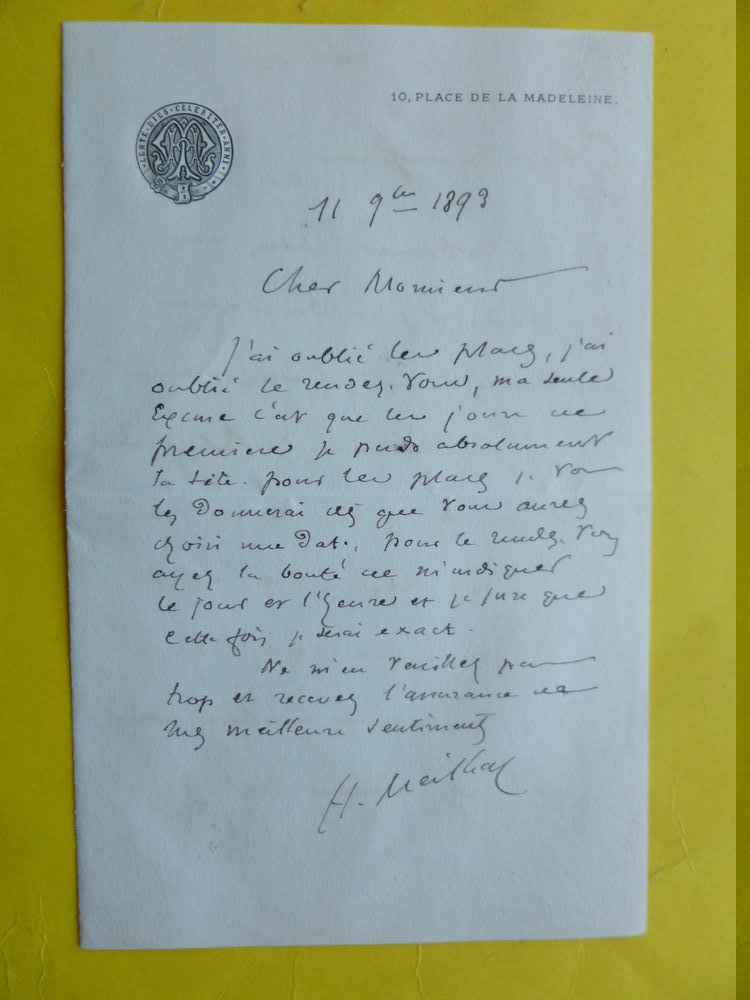 10, PLACE DE LA MADELEINE.
LENTE · DIES · CELERITER · ANNI
11 9bre 1893
Cher Monsieur
J'ai oublié les places, j'ai
oublié le rendez-vous, ma seule
Excuse c'est que les jours de
première je perds absolument
la tête. pour les places je vous
les Donnerai dès que vous aurez
choisi une Date, pour le rendez-vous
ayez la bonté de m'indiquer
le jour et l'heure et je jure que
cette fois je serai exact.
Ne m'en veuillez pas
trop et recevez l'assurance de
mes meilleurs sentiments
H. Meilhac